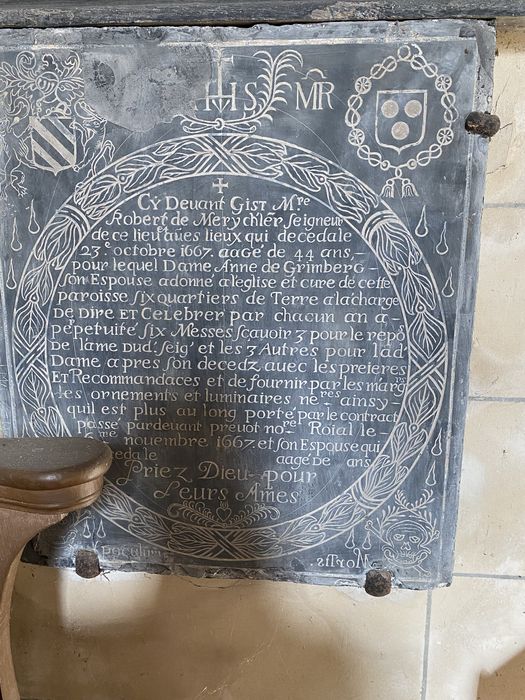 IHS MR
Cy Devant Gist Mre
Robert de Merychler seigneur
de ce lieu et aües lieux qui deceda le
23e octobre 1667. aagé de 44 ans,
pour lequel Dame Anne de Grimberg
son Espouse a donné a leglise et cure de cette
paroisse six quartiers de Terre a la charge
De Dire et Celebrer par chacun an a
perpetuité six Messes scauoir 3 pour le repos
De lame Dud. seigr et les 3 Autres pour lad.
Dame apres son decedz auec les prieres
Et Recommandaces et de fournir par les margrs
les ornements et luminaires nesres ainsy
quil est plus au long porté par le contract
passé pardeuant preuot nore Roial le
novembre 1667 et son Espouse qui
deceda le aagé De ans
Priez Dieu pour
Leurs Ames
poculum Mortis.